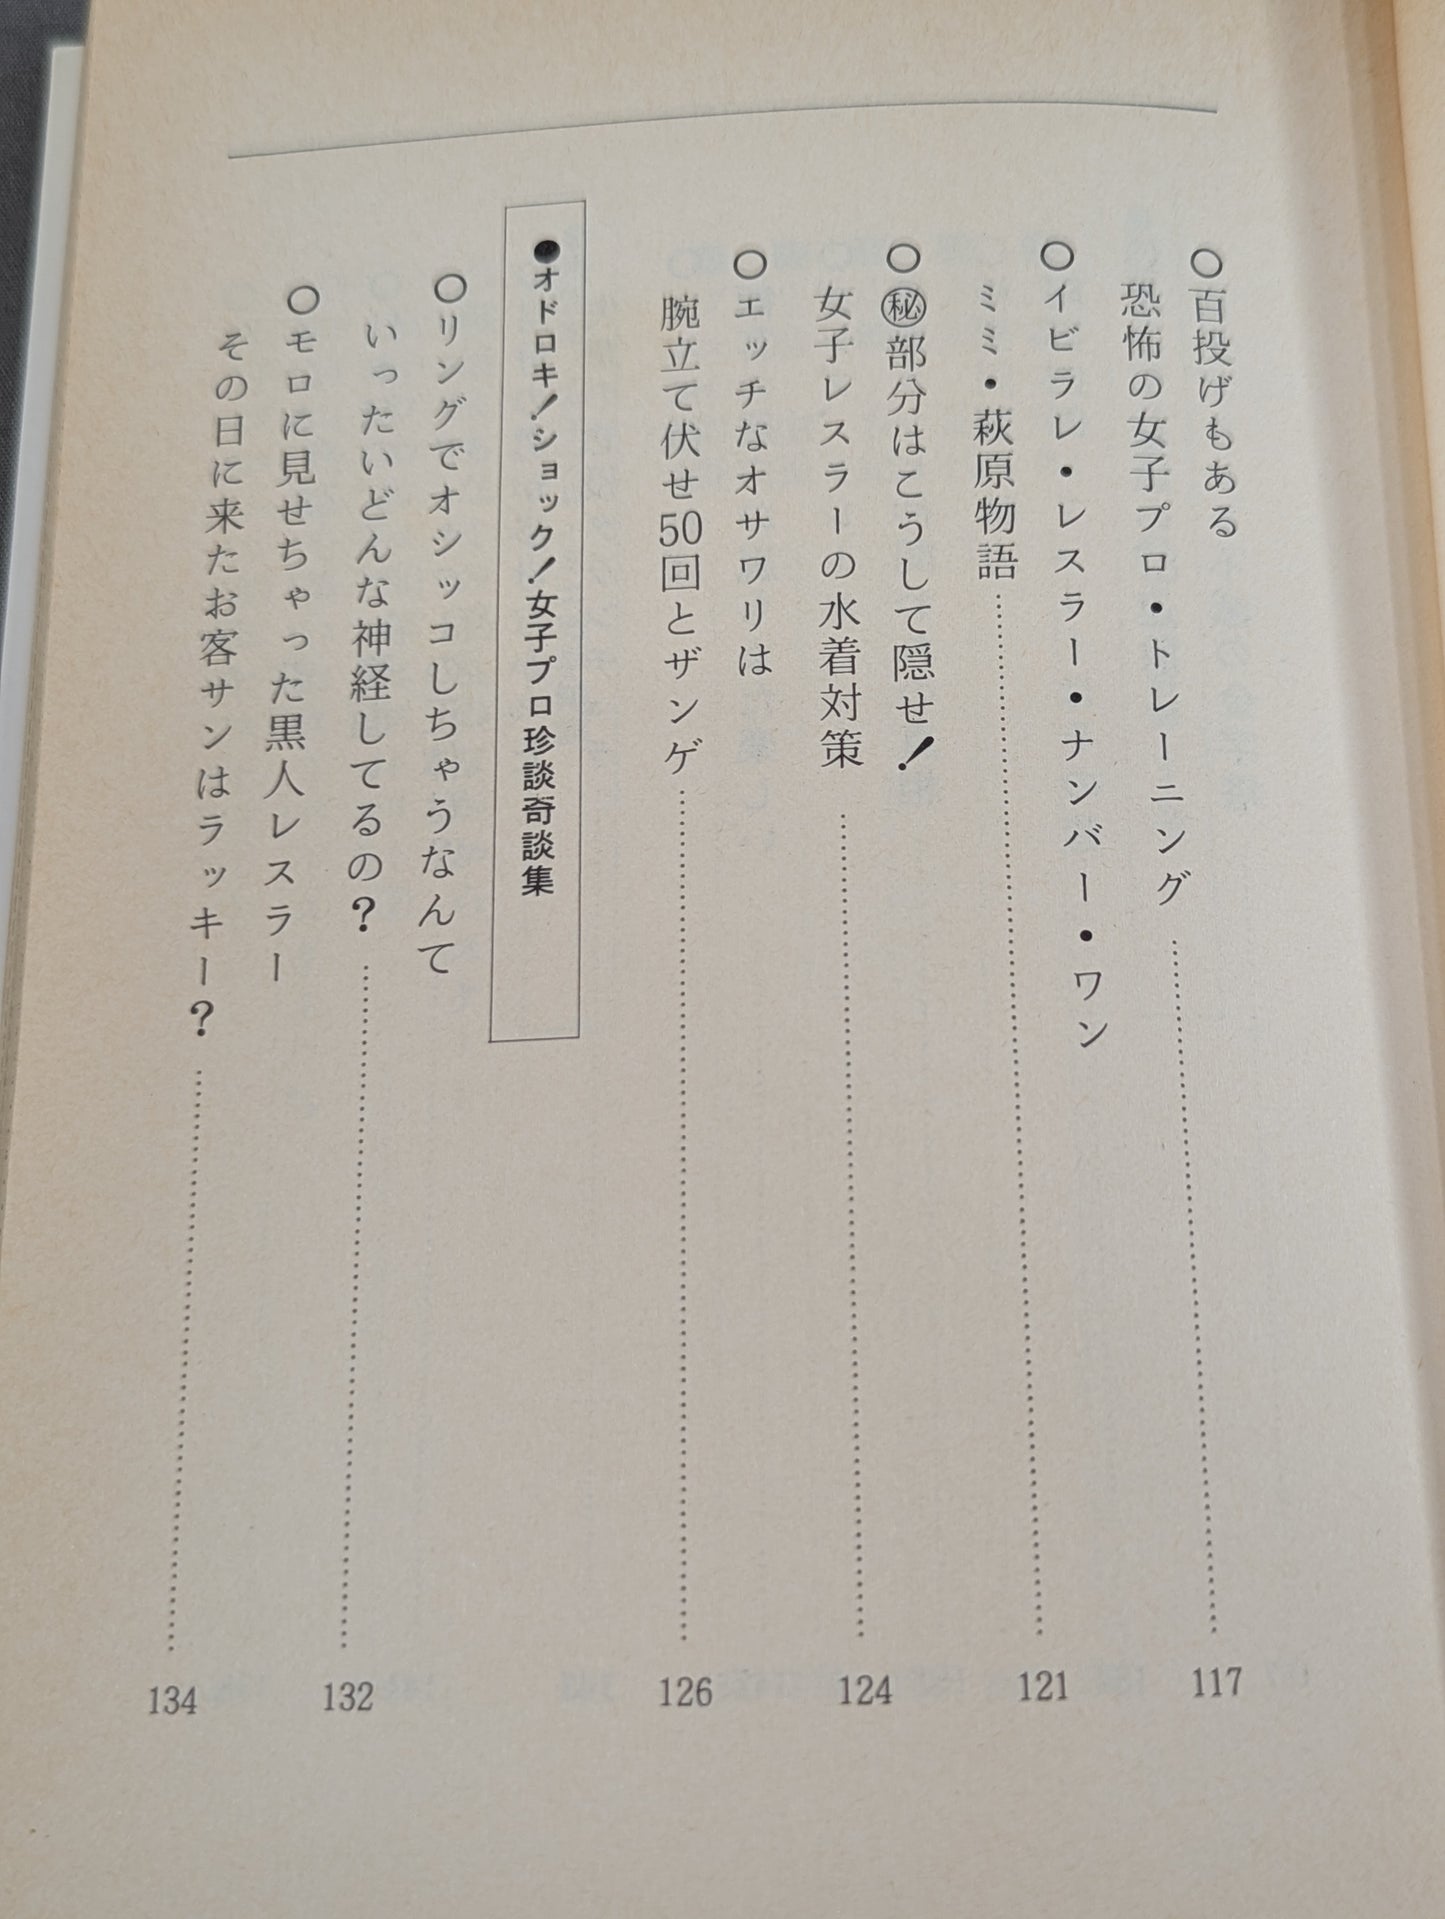 ○百投げもある
恐怖の女子プロ・トレーニング……117
○イビラレ・レスラー・ナンバー・ワン
ミミ・萩原物語……121
○㊙部分はこうして隠せ！
女子レスラーの水着対策……124
○エッチなオサワリは
腕立て伏せ50回とザンゲ……126
●オドロキ！ショック！女子プロ珍談奇談集
○リングでオシッコしちゃうなんて
いったいどんな神経してるの？……132
○モロに見せちゃった黒人レスラー
その日に来たお客サンはラッキー？……134